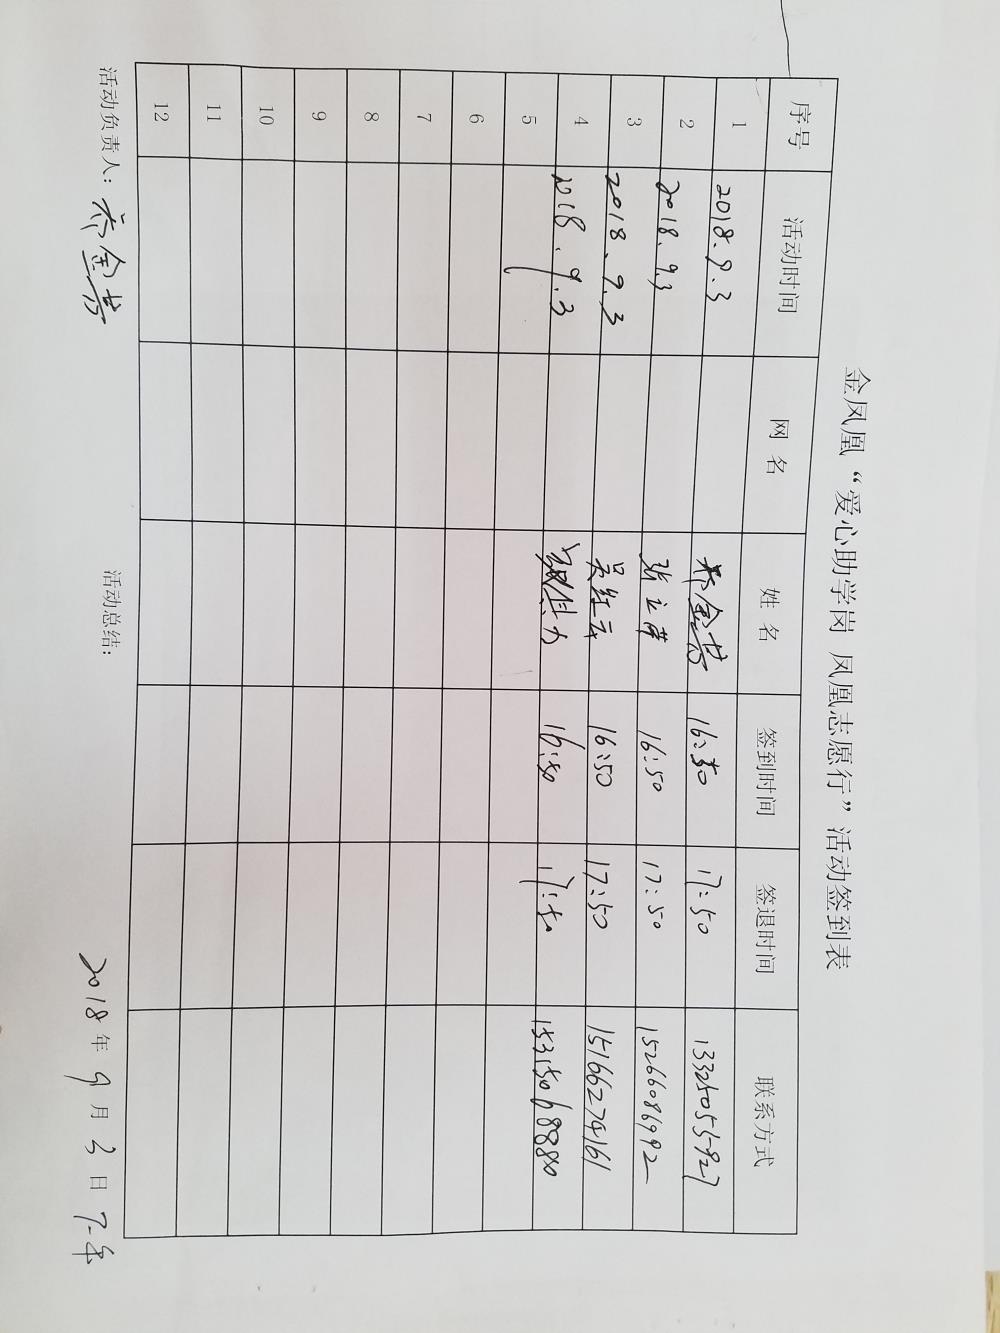 金凤凰“爱心助学岗 凤凰志愿行”活动签到表
序号 活动时间 网名 姓名 签到时间 签退时间 联系方式
1 2018.9.3 16:50 17:50 13325055927
2 2018.9.3 16:50 17:50 15266086992
3 2018.9.3 吴红云 16:50 17:50 15166274161
4 2018.9.3 16:50 17:50 15315068880
5
6
7
8
9
10
11
12
活动负责人： 活动总结： 2018年9月3日